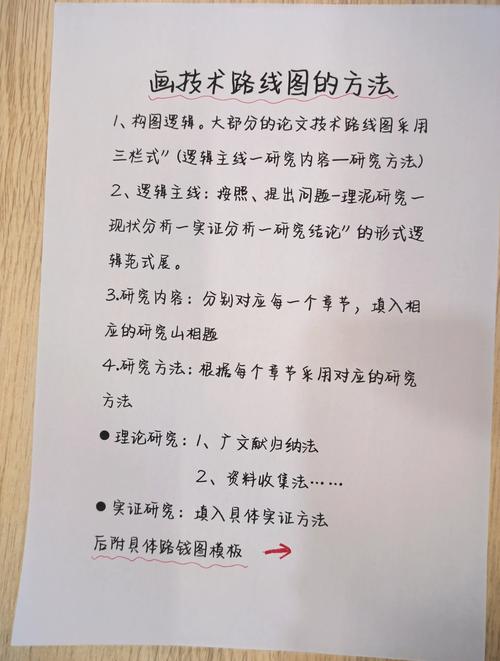 画技术路线图的方法
1、构图逻辑。大部分的论文技术路线图采用
三栏式”(逻辑主线一研究内容—研究方法)
2、逻辑主线：按照、提出问题-理泥研究一
现状分析一实证分析一研究结论”的形式逻
辑范式展。
3.研究内容：分别对应每一个章节，填入相
应的研究山相题
4.研究方法：根据每个章节采用对应的研究
方法
●理论研究：1、广文献归纳法
2、资料收集法……
●实证研究：填入具体实证方法
后附具体路钱图模板